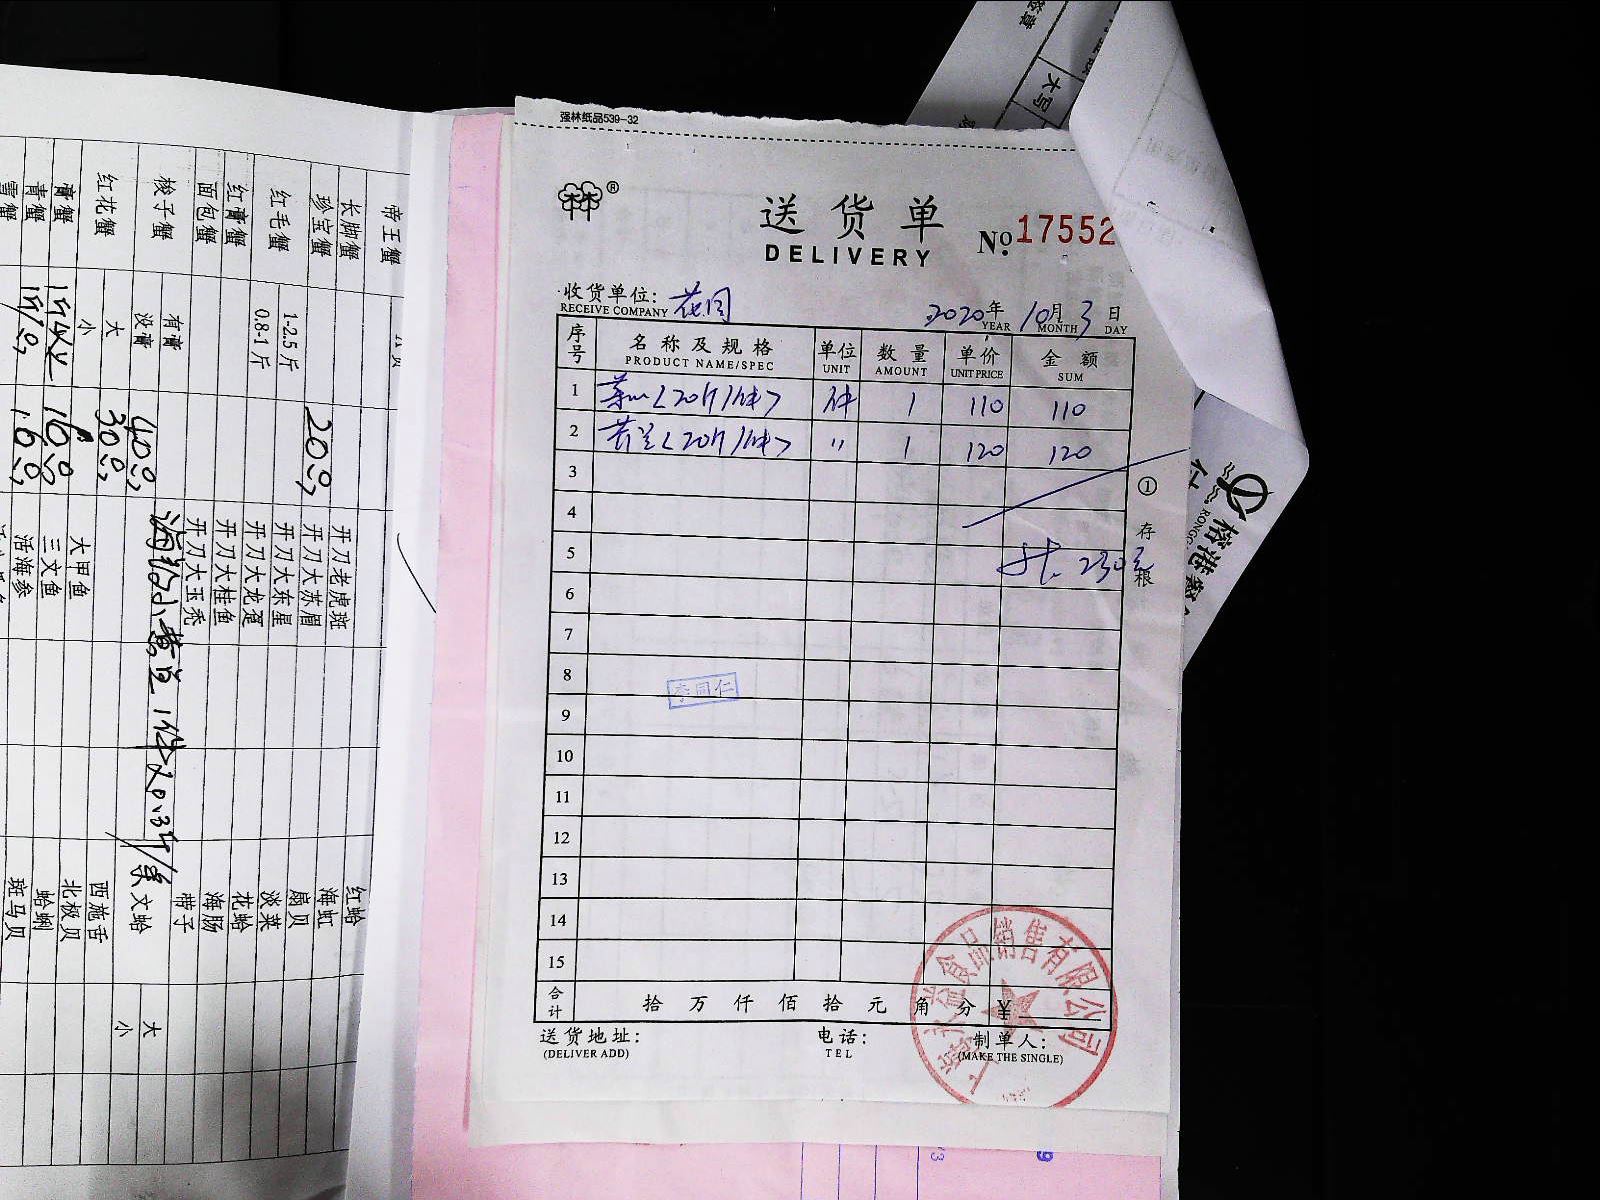 强林纸品539-32
®
送货单
DELIVERY
№ 17552
收货单位: 花园
RECEIVE COMPANY
2020年 10月 3日
YEAR MONTH DAY
序号 名称及规格 单位 数量 单价 金额
PRODUCT NAME/SPEC UNIT AMOUNT UNIT PRICE SUM
1 菜心<20斤/件> 件 1 110 110
2 芥兰<20斤/件> 〃 1 120 120
3
4
5 共 230元
6
7
8
9
10
11
12
13
14
15
①存根
李同仁
合计 拾 万 仟 佰 拾 元 角 分 ¥
送货地址: 电话: 制单人:
(DELIVER ADD) TEL (MAKE THE SINGLE)
食品销售有限公司
帝王蟹
长脚蟹
珍宝蟹 20.
红毛蟹 1-2.5斤
0.8-1斤
红膏蟹
面包蟹
梭子蟹 有膏
没膏 40.
红花蟹 大 30.
小
膏蟹 160.
青蟹 160.
雪蟹
开刀老虎斑
开刀大苏眉
开刀大东星
开刀大龙趸
开刀大桂鱼
开刀大玉秃
大甲鱼
三文鱼
活海参
红蛤
海虹
扇贝
淡菜
花蛤
海肠
带子
文蛤 大
小
西施舌
北极贝
蛤蜊
斑马贝
大写